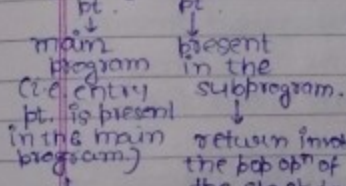 pt. pt.
main
program
(i.e. entry
pt. is present
in the main
program)
present
in the
subprogram.
return
the pop opⁿ of